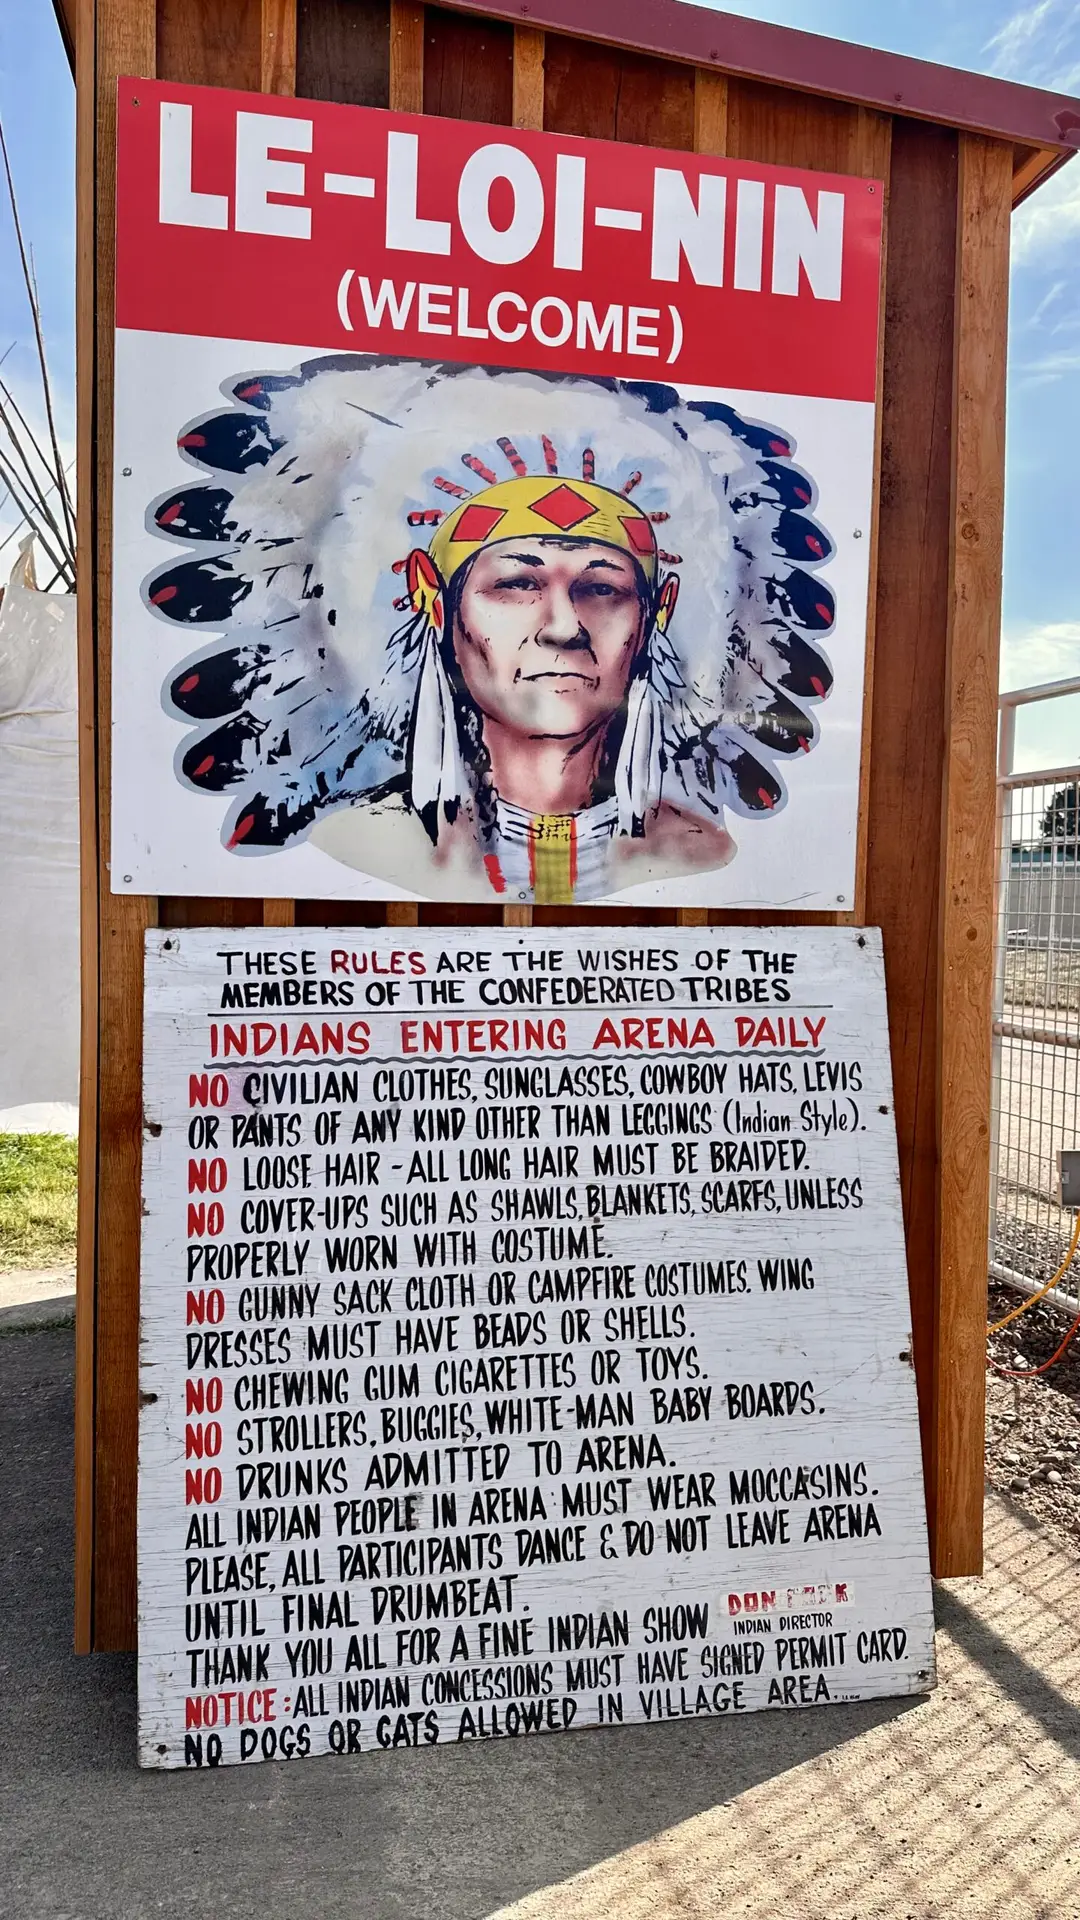 LE-LOI-NIN
(WELCOME)
THESE RULES ARE THE WISHES OF THE
MEMBERS OF THE CONFEDERATED TRIBES
INDIANS ENTERING ARENA DAILY
NO CIVILIAN CLOTHES, SUNGLASSES, COWBOY HATS, LEVIS
OR PANTS OF ANY KIND OTHER THAN LEGGINGS (Indian Style).
NO LOOSE HAIR - ALL LONG HAIR MUST BE BRAIDED.
NO COVER-UPS SUCH AS SHAWLS, BLANKETS, SCARFS, UNLESS
PROPERLY WORN WITH COSTUME.
NO GUNNY SACK CLOTH OR CAMPFIRE COSTUMES. WING
DRESSES MUST HAVE BEADS OR SHELLS.
NO CHEWING GUM CIGARETTES OR TOYS.
NO STROLLERS, BUGGIES, WHITE-MAN BABY BOARDS.
NO DRUNKS ADMITTED TO ARENA.
ALL INDIAN PEOPLE IN ARENA MUST WEAR MOCCASINS.
PLEASE, ALL PARTICIPANTS DANCE & DO NOT LEAVE ARENA
UNTIL FINAL DRUMBEAT.
THANK YOU ALL FOR A FINE INDIAN SHOW
DON
INDIAN DIRECTOR
NOTICE: ALL INDIAN CONCESSIONS MUST HAVE SIGNED PERMIT CARD.
NO DOGS OR CATS ALLOWED IN VILLAGE AREA.